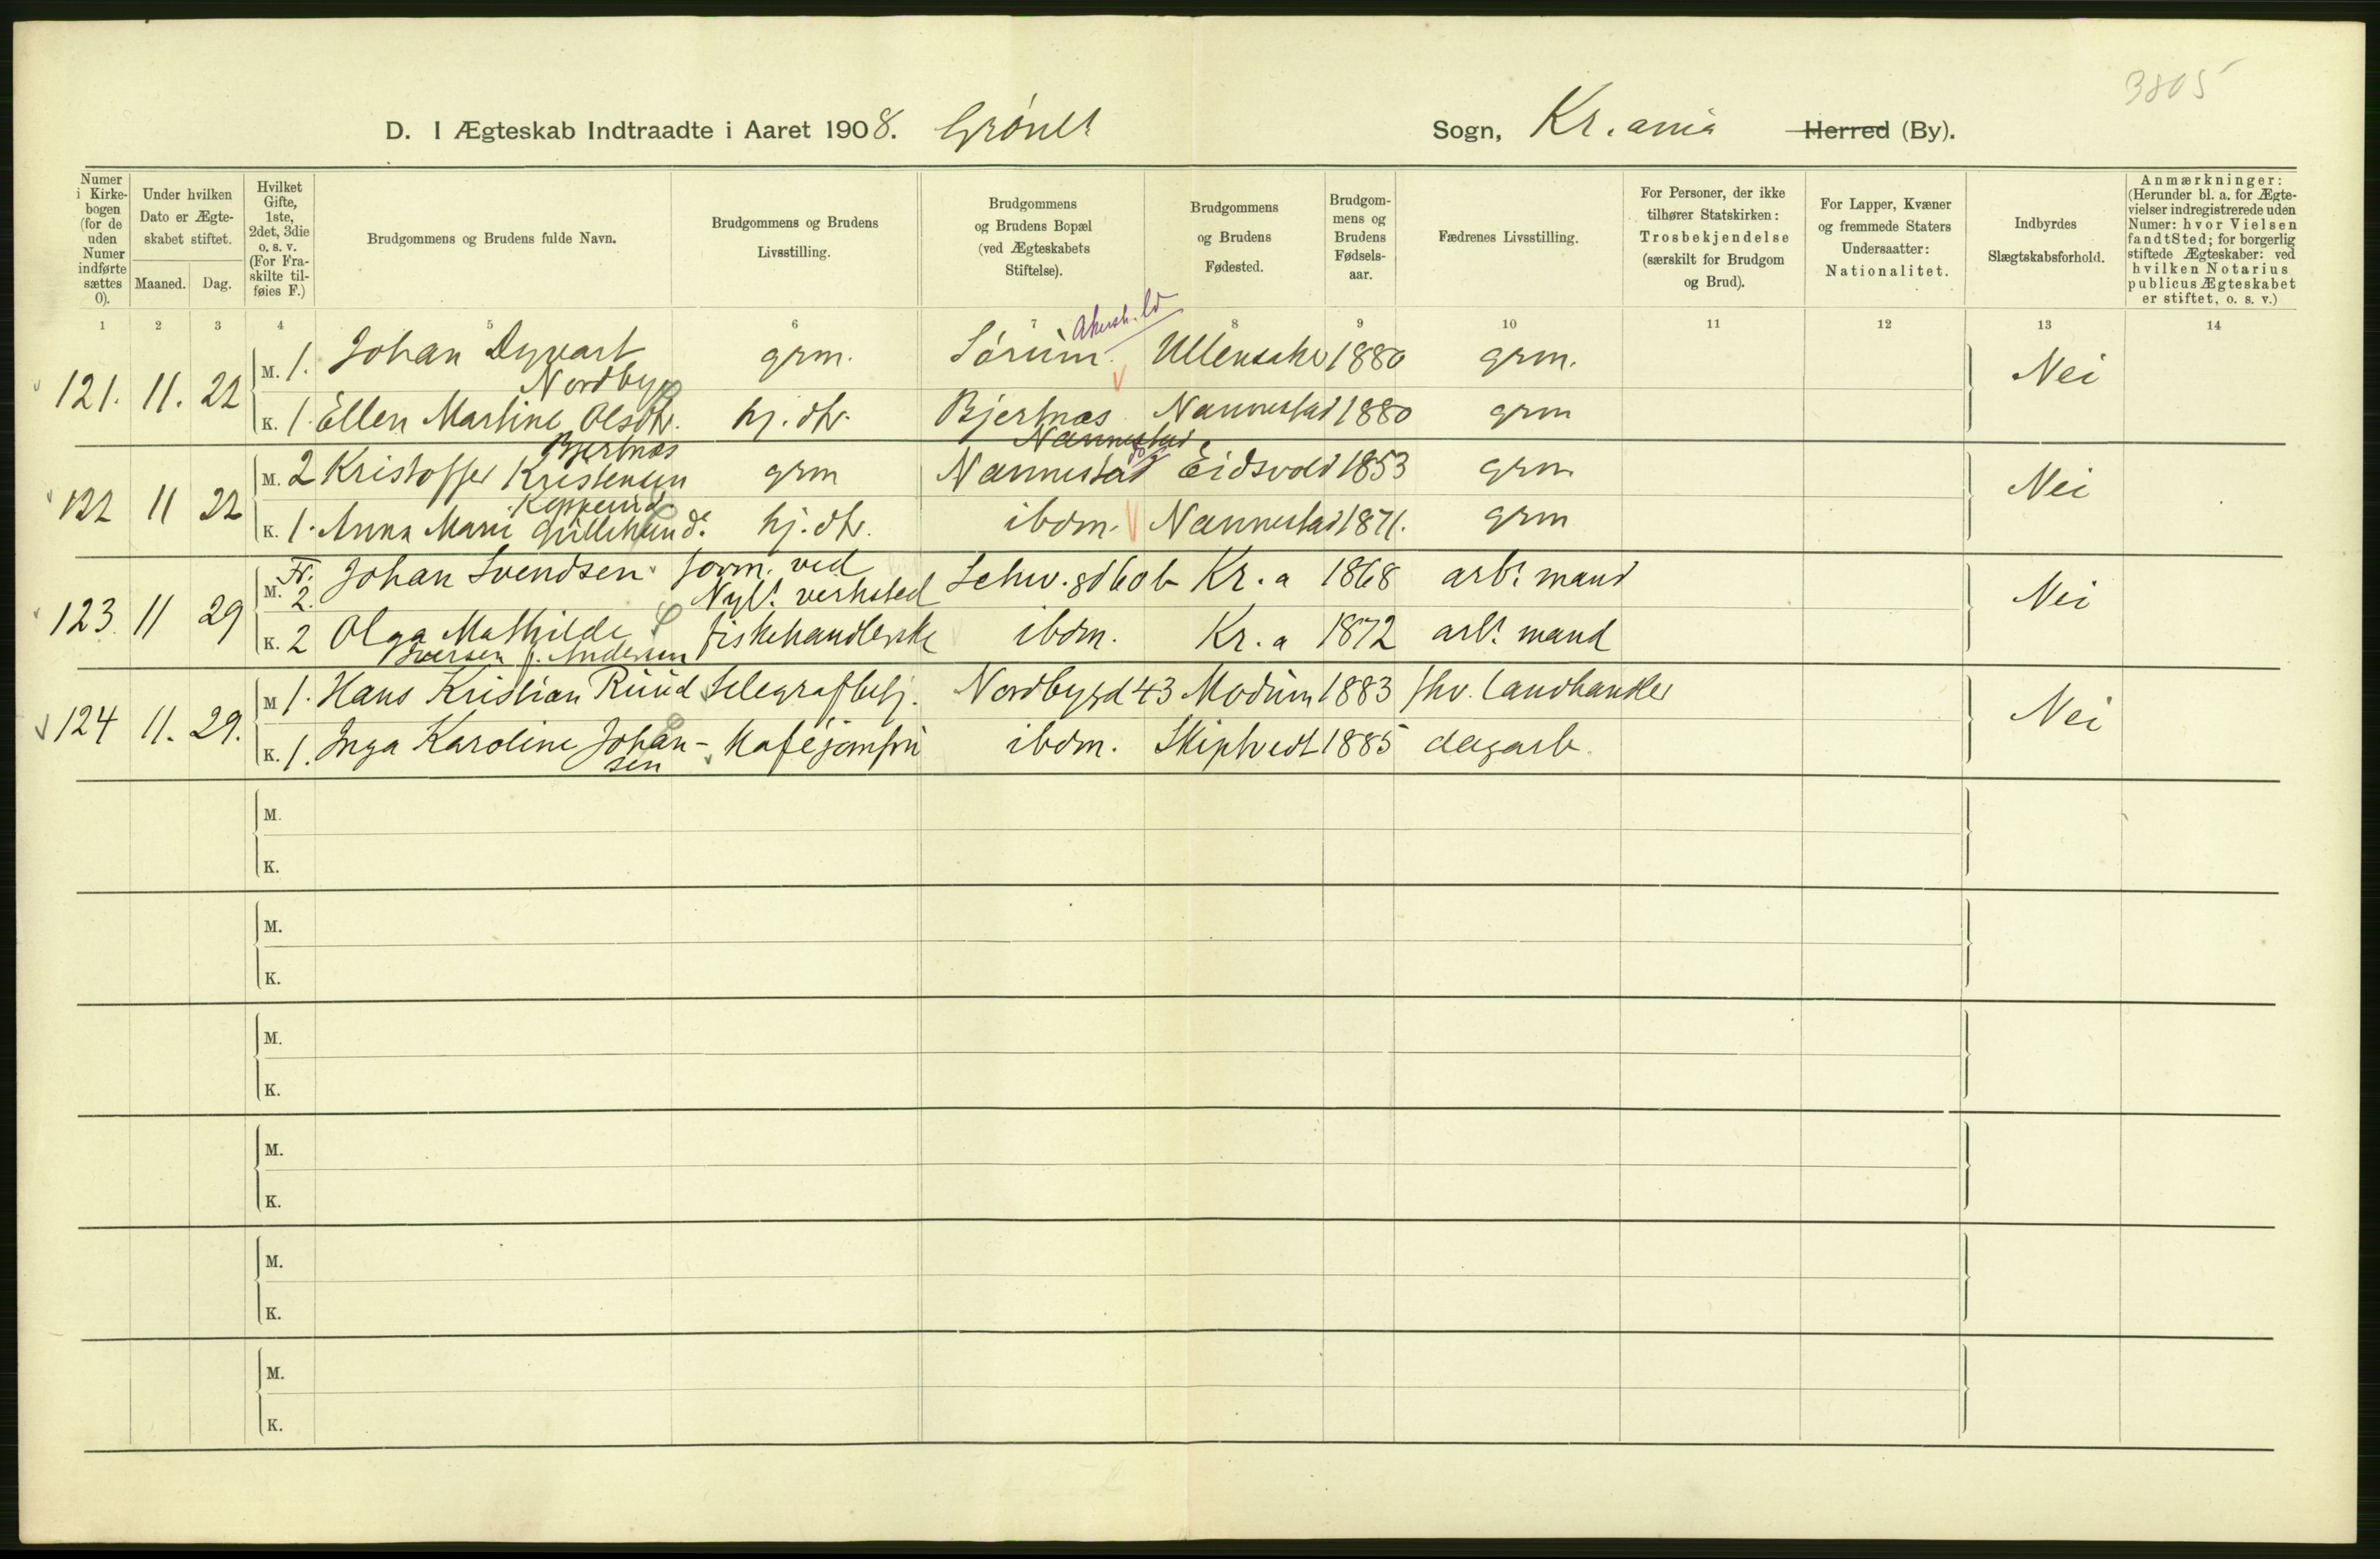 3805
D. I Ægteskab Indtraadte i Aaret 1908. Grønl. Sogn, Kr.ania Herred (By).
Numer i Kirkebogen (for de uden Numer indførte sættes 0).
Under hvilken Dato er Ægteskabet stiftet.
Maaned. Dag.
Hvilket Gifte, 1ste, 2det, 3die o. s. v. (For Fraskilte tilføies F.)
Brudgommens og Brudens fulde Navn.
Brudgommens og Brudens Livsstilling.
Brudgommens og Brudens Bopæl (ved Ægteskabets Stiftelse).
Brudgommens og Brudens Fødested.
Brudgommens og Brudens Fødselsaar.
Fædrenes Livsstilling.
For Personer, der ikke tilhører Statskirken: Trosbekjendelse (særskilt for Brudgom og Brud).
For Lapper, Kvæner og fremmede Staters Undersaatter: Nationalitet.
Indbyrdes Slægtskabsforhold.
Anmærkninger: (Herunder bl. a. for Ægtevielser indregistrerede uden Numer: hvor Vielsen fandt Sted; for borgerlig stiftede Ægteskaber: ved hvilken Notarius publicus Ægteskabet er stiftet, o. s. v.)
1 2 3 4 5 6 7 8 9 10 11 12 13 14
121. 11. 22 M. 1. Johan Dyvart Nordbye grm. Sørum. Ullensaker 1880 grm. Nei
K. 1. Ellen Martine Olsdtr. Bjertnæs hj. dtr. Bjertnæs Nannestad Nannestad 1880 grm
122 11 22 M. 2 Kristoffer Kristensen Kopperud grm Nannestad Eidsvold 1853 grm Nei
K. 1. Anna Marie Gullehund hj. dtr. ibdm. Nannestad 1871. grm
123 11 29 M. Fr. 2. Johan Svendsen form. ved Nyl. verksted Schw. gd 60 b Kr.a 1868 arb. mand Nei
K. 2 Olga Mathilde Iversen f. Andersen fiskehandlerske ibdm. Kr.a 1872 arb. mand
124 11. 29. M 1. Hans Kristian Ruud telegrafbetj. Nordbygd 43 Modum 1883 fhv. landhandler Nei
K. 1. Inga Karoline Johansen Kaféjomfru ibdm. Skiptvedt 1885 dagarb.
M.
K.
M.
K.
M.
K.
M.
K.
M.
K.
M.
K.